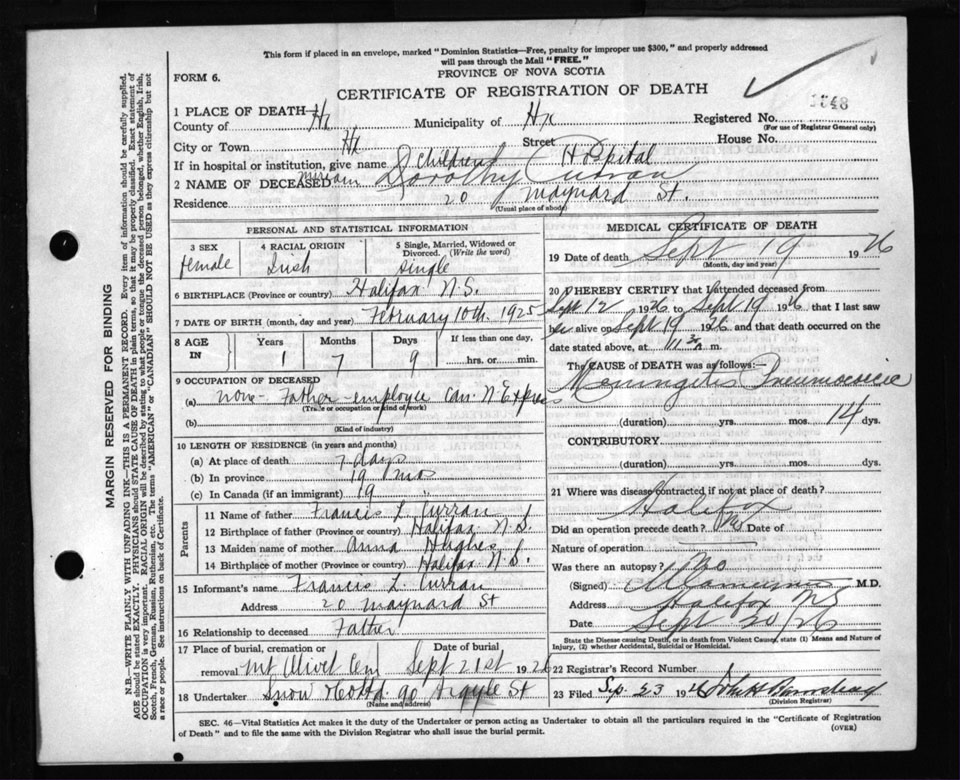 This form if placed in an envelope, marked "Dominion Statistics—Free, penalty for improper use $300," and properly addressed
will pass through the Mail "FREE."
PROVINCE OF NOVA SCOTIA
FORM 6.
CERTIFICATE OF REGISTRATION OF DEATH
1 PLACE OF DEATH
County of Hx Municipality of Hx Registered No.
(For use of Registrar General only)
City or Town Hx Street House No.
If in hospital or institution, give name Childrens Hospital
2 NAME OF DECEASED Miriam Dorothy Curran
Residence 20 Maynard St.
(Usual place of abode)
PERSONAL AND STATISTICAL INFORMATION
3 SEX 4 RACIAL ORIGIN 5 Single, Married, Widowed or
Divorced. (Write the word)
Female Irish Single
6 BIRTHPLACE (Province or country) Halifax N.S.
7 DATE OF BIRTH (month, day and year) February 10th 1925
8 AGE IN Years Months Days If less than one day,
1 7 9 hrs. or min.
9 OCCUPATION OF DECEASED
(a) none- Father-employee Can. N. Express
(Trade or occupation or kind of work)
(b)
(Kind of industry)
10 LENGTH OF RESIDENCE (in years and months)
(a) At place of death 7 days
(b) In province 19 mos
(c) In Canada (if an immigrant) 19
Parents
11 Name of father Francis L. Curran
12 Birthplace of father (Province or Country) Halifax N.S.
13 Maiden name of mother Anna Hughes
14 Birthplace of mother (Province or Country) Halifax N.S.
15 Informant's name Francis L. Curran
Address 20 Maynard St
16 Relationship to deceased Father
17 Place of burial, cremation or
removal Mt Olivet Cem Sept 21st 1926
18 Undertaker Snow & Co Ltd. 90 Argyle St
(Name and address)
MEDICAL CERTIFICATE OF DEATH
19 Date of death Sept 19 1926
(Month, day and year)
20 I HEREBY CERTIFY that I attended deceased from
Sept 12 1926 to Sept 19 1926 that I last saw
her alive on Sept 19 1926 and that death occurred on
date stated above, at 11 30 m.
The CAUSE OF DEATH was as follows:—
Meningitis Pneumococcic
(duration) yrs. mos. 14 dys.
CONTRIBUTORY
(duration) yrs. mos. dys.
21 Where was disease contracted if not at place of death?
Halifax
Did an operation precede death? No Date of
Nature of operation
Was there an autopsy? No
(Signed) M.D.
Address Halifax NS
Date Sept 20/26
State the Disease causing Death, or in death from Violent Causes, state (1) Means and Nature of
Injury, (2) whether Accidental, Suicidal or Homicidal.
22 Registrar's Record Number
23 Filed Sep. 23 1926 John H Barnstead
(Division Registrar)
SEC. 46—Vital Statistics Act makes it the duty of the Undertaker or person acting as Undertaker to obtain all the particulars required in the "Certificate of Registration
of Death" and to file the same with the Division Registrar who shall issue the burial permit.
(OVER)
MARGIN RESERVED FOR BINDING
N.B.—WRITE PLAINLY WITH UNFADING INK—THIS IS A PERMANENT RECORD. Every item of information should be carefully supplied.
AGE should be stated EXACTLY. PHYSICIANS should STATE CAUSE OF DEATH in plain terms, so that it may be properly classified. Exact statement of
OCCUPATION is very important. RACIAL ORIGIN will be described by stating to what people or tongue the deceased person belonged, whether English, Irish,
Scotch, French, German, Russian, Ruthenian, etc. The terms "AMERICAN" or "CANADIAN" SHOULD NOT BE USED as they express citizenship but not
a race or people. See instructions on back of Certificate.